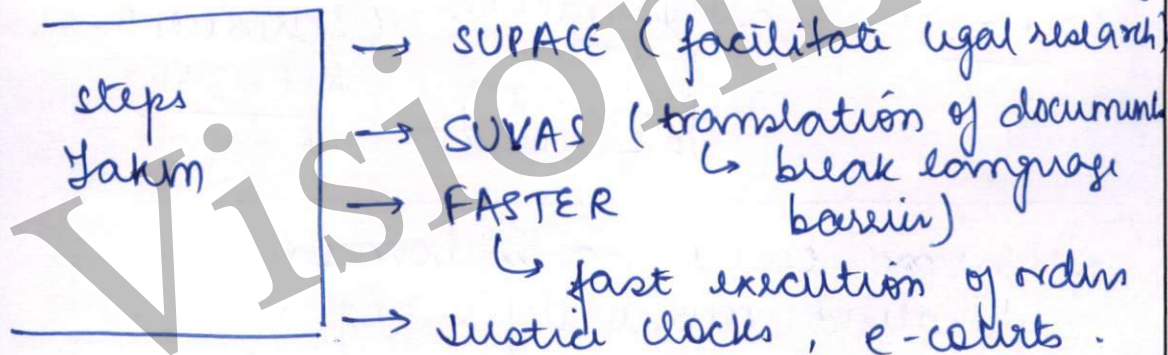 steps
Taken
→ SUPACE (facilitate legal research)
→ SUVAS (translation of documents
↳ break language
barrier)
→ FASTER
↳ fast execution of orders
→ Justice clocks, e-courts.
Vision